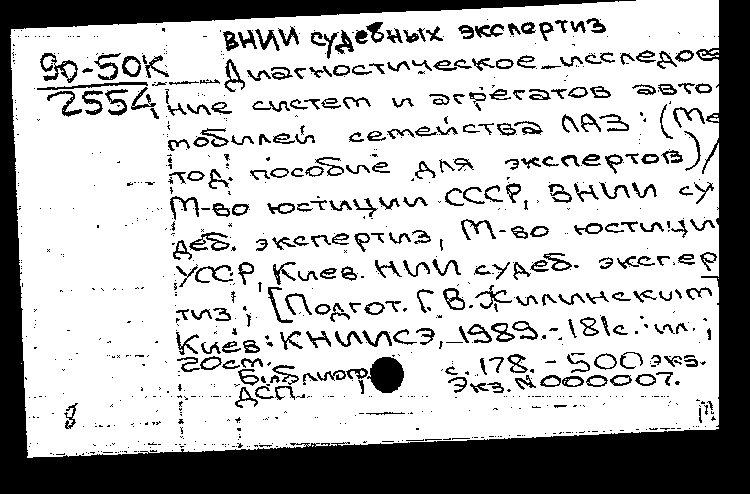 ВНИИ судебных экспертиз
90-50К
2554
Диагностическое исследова
ние систем и агрегатов авто-
мобилей семейства ЛАЗ: (Ме
тод. пособие для экспертов)/
М-во юстиции СССР, ВНИИ су-
деб. экспертиз, М-во юстиции
УССР, Киев. НИИ судеб. экспер
тиз; [Подгот. Г.В.Жилинским]
Киев: КНИИСЭ, 1989.-181с.:ил.;
20см.
Библиогр. с.178. - 500экз.
ДСП. Экз.N000007.
8